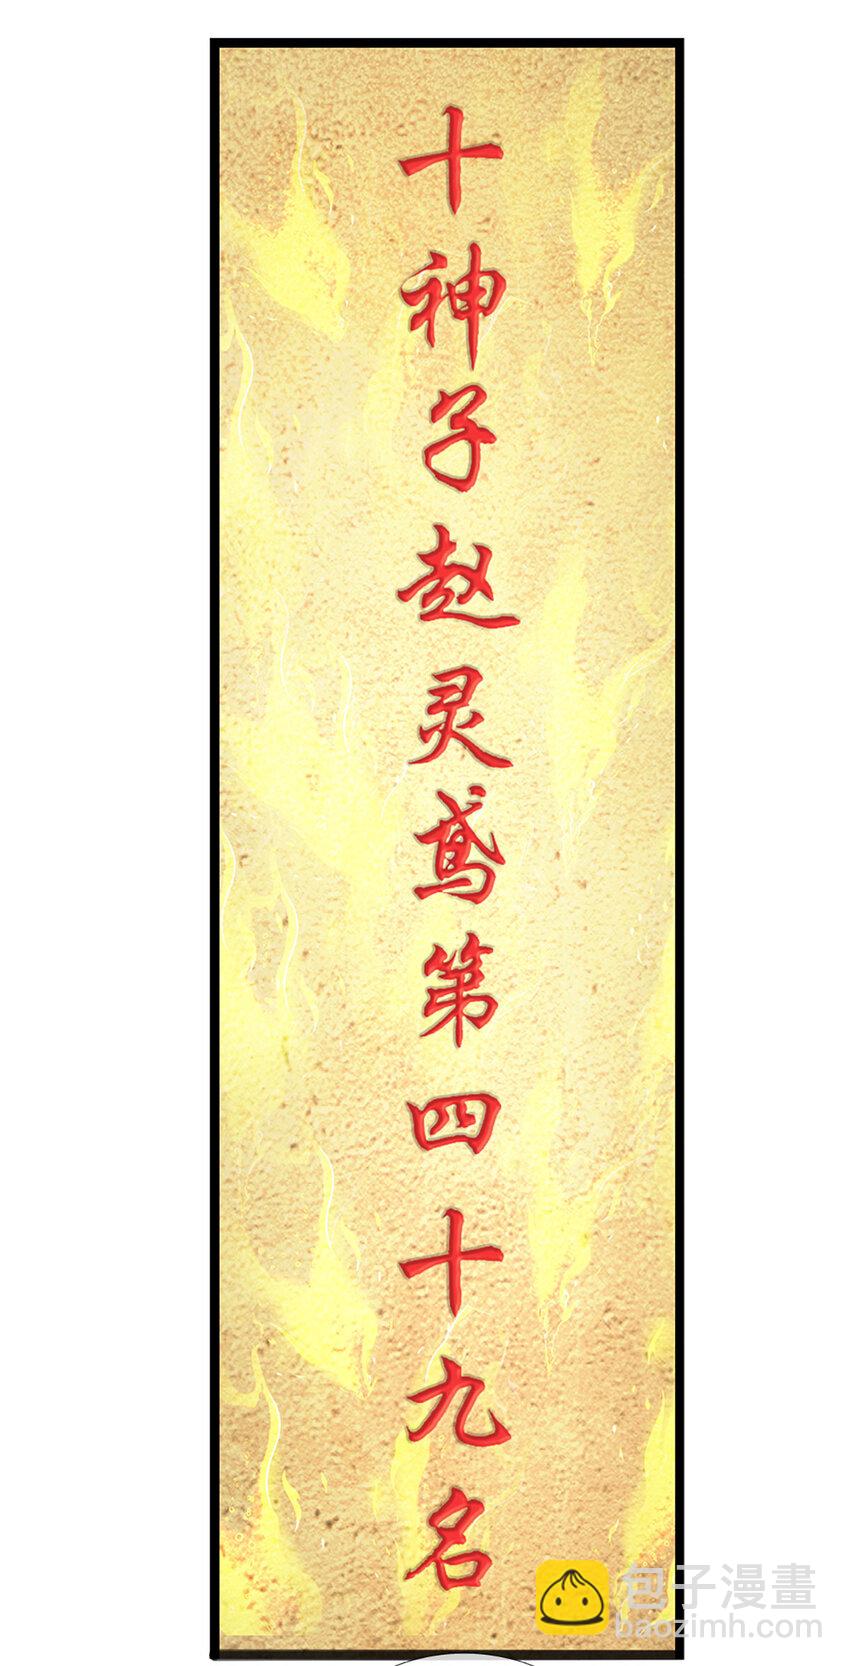 十神子赵灵鸢第四十九名
包子漫畫
baozimh.com